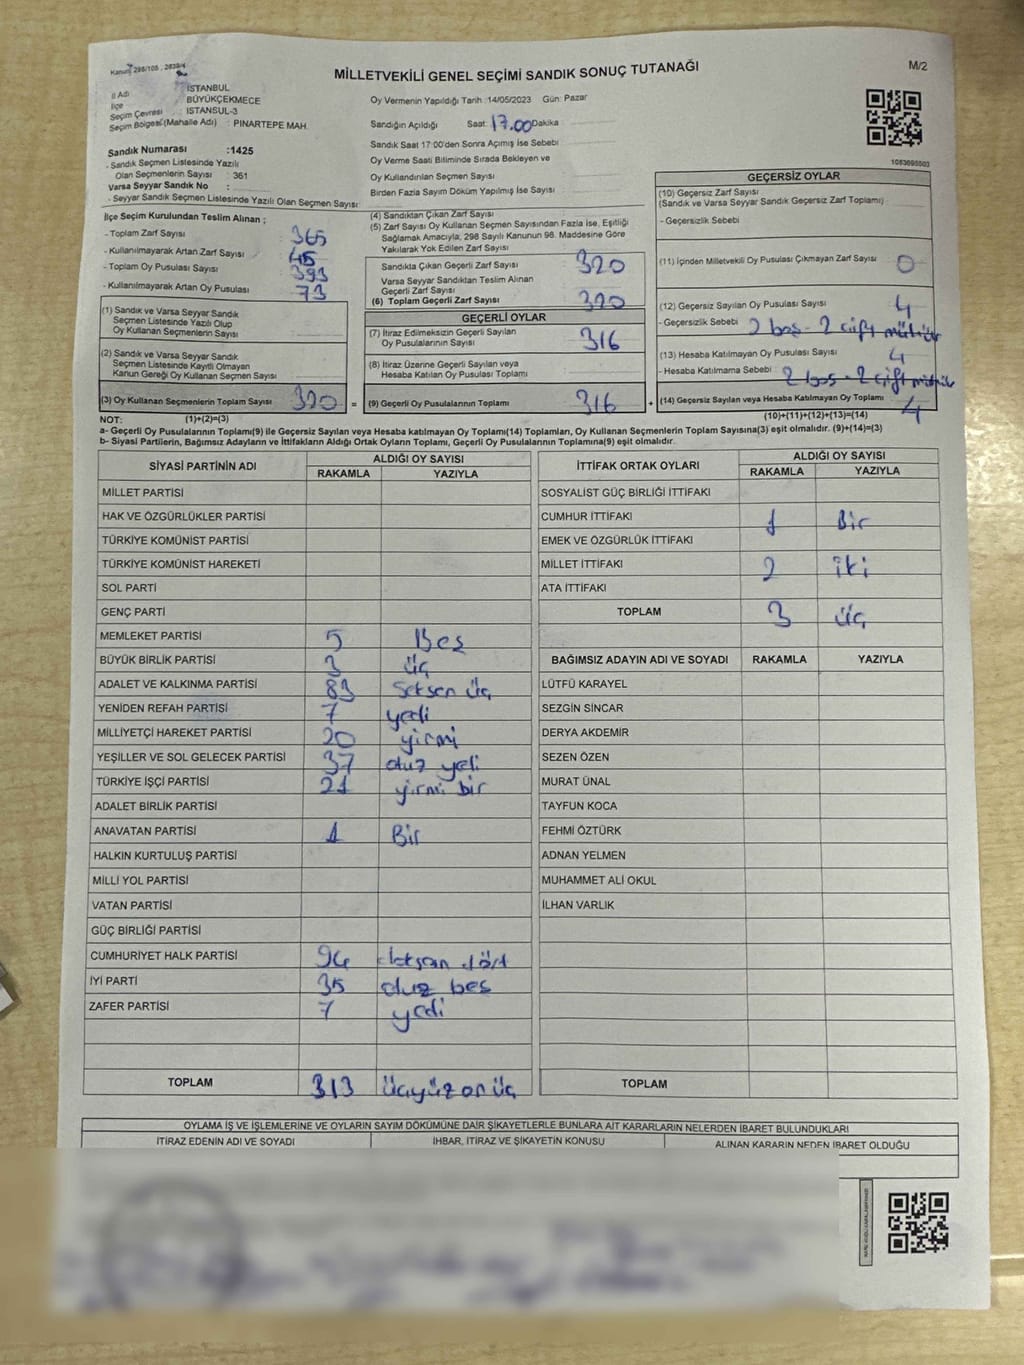 Kanun 298/105 , 2839/4
MİLLETVEKİLİ GENEL SEÇİMİ SANDIK SONUÇ TUTANAĞI
M/2
İl Adı İSTANBUL
İlçe BÜYÜKÇEKMECE
Seçim Çevresi İSTANSUL-3
Seçim Bölgesi(Mahalle Adı) : PINARTEPE MAH.
Sandık Numarası :1425
- Sandık Seçmen Listesinde Yazılı
Olan Seçmenlerin Sayısı : 361
Varsa Seyyar Sandık No :
- Seyyar Sandık Seçmen Listesinde Yazılı Olan Seçmen Sayısı
Oy Vermenin Yapıldığı Tarih :14/05/2023 Gün: Pazar
Sandığın Açıldığı Saat: 17.00 Dakika
Sandık Saat 17:00'den Sonra Açımış İse Sebebi
Oy Verme Saati Bitiminde Sırada Bekleyen ve
Oy Kullandırılan Seçmen Sayısı
Birden Fazla Sayım Döküm Yapılmış İse Sayısı
1083695503
İlçe Seçim Kurulundan Teslim Alınan ;
- Toplam Zarf Sayısı 365
- Kullanılmayarak Artan Zarf Sayısı 45
- Toplam Oy Pusulası Sayısı 393
- Kullanılmayarak Artan Oy Pusulası 73
(1) Sandık ve Varsa Seyyar Sandık
Seçmen Listesinde Yazılı Olup
Oy Kullanan Seçmenlerin Sayısı
(2) Sandık ve Varsa Seyyar Sandık
Seçmen Listesinde Kayıtlı Olmayan
Kanun Gereği Oy Kullanan Seçmen Sayısı
(3) Oy Kullanan Seçmenlerin Toplam Sayısı 320 =
(4) Sandıktan Çıkan Zarf Sayısı
(5) Zarf Sayısı Oy Kullanan Seçmen Sayısından Fazla İse, Eşitliği
Sağlamak Amacıyla, 298 Sayılı Kanunun 98. Maddesine Göre
Yakılarak Yok Edilen Zarf Sayısı
Sandıkta Çıkan Geçerli Zarf Sayısı 320
Varsa Seyyar Sandıktan Teslim Alınan
Geçerli Zarf Sayısı
(6) Toplam Geçerli Zarf Sayısı 320
GEÇERLİ OYLAR
(7) İtiraz Edilmeksizin Geçerli Sayılan
Oy Pusulalarının Sayısı 316
(8) İtiraz Üzerine Geçerli Sayılan veya
Hesaba Katılan Oy Pusulası Toplamı
(9) Geçerli Oy Pusulalarının Toplamı 316 +
GEÇERSİZ OYLAR
(10) Geçersiz Zarf Sayısı
(Sandık ve Varsa Seyyar Sandık Geçersiz Zarf Toplamı)
- Geçersizlik Sebebi
(11) İçinden Milletvekili Oy Pusulası Çıkmayan Zarf Sayısı 0
(12) Geçersiz Sayılan Oy Pusulası Sayısı 4
- Geçersizlik Sebebi 2 boş - 2 çift mühür
(13) Hesaba Katılmayan Oy Pusulası Sayısı 4
- Hesaba Katılmama Sebebi 2 boş - 2 çift mühür
(14) Geçersiz Sayılan veya Hesaba Katılmayan Oy Toplamı 4
NOT: (1)+(2)=(3) (10)+(11)+(12)+(13)=(14)
a- Geçerli Oy Pusulalarının Toplamı(9) ile Geçersiz Sayılan veya Hesaba katılmayan Oy Toplamı(14) Toplamları, Oy Kullanan Seçmenlerin Toplam Sayısına(3) eşit olmalıdır. (9)+(14)=(3)
b- Siyasi Partilerin, Bağımsız Adayların ve İttifakların Aldığı Ortak Oyların Toplamı, Geçerli Oy Pusulalarının Toplamına(9) eşit olmalıdır.
SİYASİ PARTİNİN ADI ALDIĞI OY SAYISI
RAKAMLA YAZIYLA
MİLLET PARTİSİ
HAK VE ÖZGÜRLÜKLER PARTİSİ
TÜRKİYE KOMÜNİST PARTİSİ
TÜRKİYE KOMÜNİST HAREKETİ
SOL PARTİ
GENÇ PARTİ
MEMLEKET PARTİSİ 5 Beş
BÜYÜK BİRLİK PARTİSİ 3 üç
ADALET VE KALKINMA PARTİSİ 83 Seksen üç
YENİDEN REFAH PARTİSİ 7 yedi
MİLLİYETÇİ HAREKET PARTİSİ 20 yirmi
YEŞİLLER VE SOL GELECEK PARTİSİ 37 otuz yedi
TÜRKİYE İŞÇİ PARTİSİ 21 yirmi bir
ADALET BİRLİK PARTİSİ
ANAVATAN PARTİSİ 1 Bir
HALKIN KURTULUŞ PARTİSİ
MİLLİ YOL PARTİSİ
VATAN PARTİSİ
GÜÇ BİRLİĞİ PARTİSİ
CUMHURİYET HALK PARTİSİ 94 doksan dört
İYİ PARTİ 35 otuz beş
ZAFER PARTİSİ 7 yedi
TOPLAM 313 üçyüz on üç
İTTİFAK ORTAK OYLARI ALDIĞI OY SAYISI
RAKAMLA YAZIYLA
SOSYALİST GÜÇ BİRLİĞİ İTTİFAKI
CUMHUR İTTİFAKI 1 Bir
EMEK VE ÖZGÜRLÜK İTTİFAKI
MİLLET İTTİFAKI 2 iki
ATA İTTİFAKI
TOPLAM 3 üç
BAĞIMSIZ ADAYIN ADI VE SOYADI RAKAMLA YAZIYLA
LÜTFÜ KARAYEL
SEZGİN SİNCAR
DERYA AKDEMİR
SEZEN ÖZEN
MURAT ÜNAL
TAYFUN KOCA
FEHMİ ÖZTÜRK
ADNAN YELMEN
MUHAMMET ALİ OKUL
İLHAN VARLIK
TOPLAM
OYLAMA İŞ VE İŞLEMLERİNE VE OYLARIN SAYIM DÖKÜMÜNE DAİR ŞİKAYETLERLE BUNLARA AİT KARARLARIN NELERDEN İBARET BULUNDUKLARI
İTİRAZ EDENİN ADI VE SOYADI İHBAR, İTİRAZ VE ŞİKAYETİN KONUSU ALINAN KARARIN NEDEN İBARET OLDUĞU